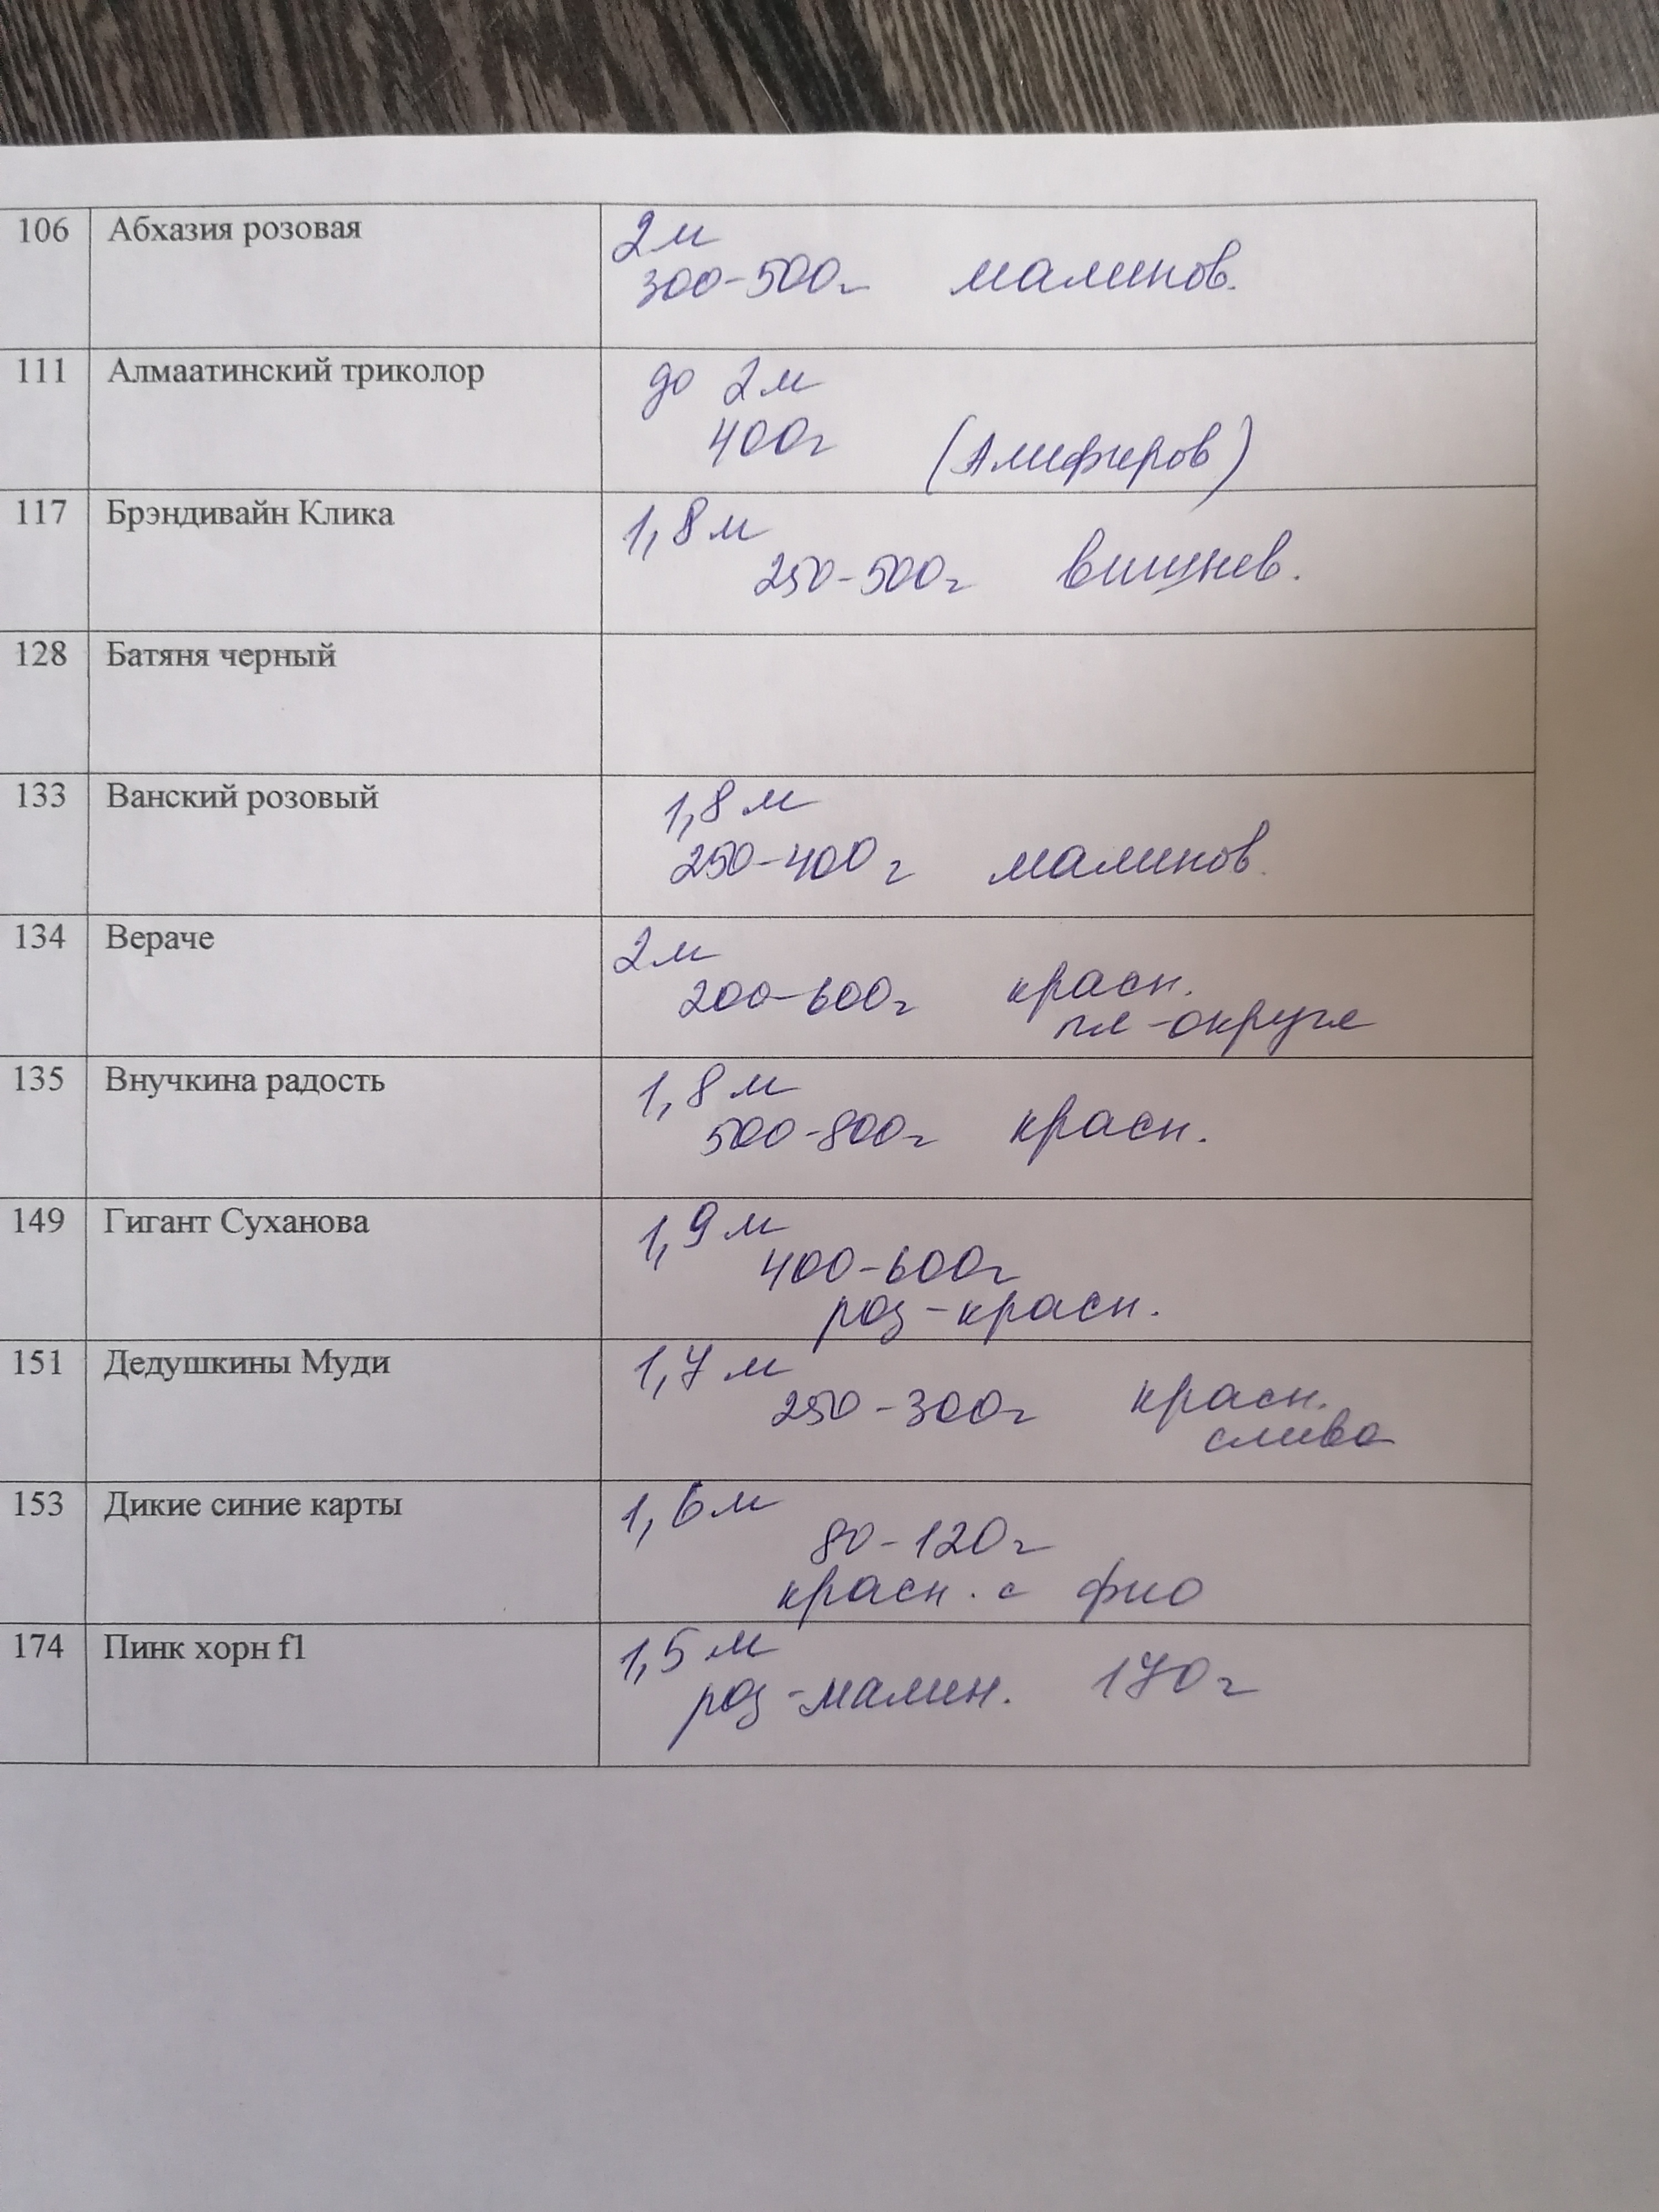 106 Абхазия розовая 2м
300-500г малинов.
111 Алмаатинский триколор до 2м
400г (Алифиров)
117 Брэндивайн Клика 1,8м
250-500г вишнев.
128 Батяня черный
133 Ванский розовый 1,8м
250-400г малинов.
134 Вераче 2м
200-600г красн.
пл-округл
135 Внучкина радость 1,8м
500-800г красн.
149 Гигант Суханова 1,9м
400-600г
роз-красн.
151 Дедушкины Муди 1,7м
250-300г красн.
слива
153 Дикие синие карты 1,6м
80-120г
красн. с фио
174 Пинк хорн f1 1,5м
роз-малин. 170г